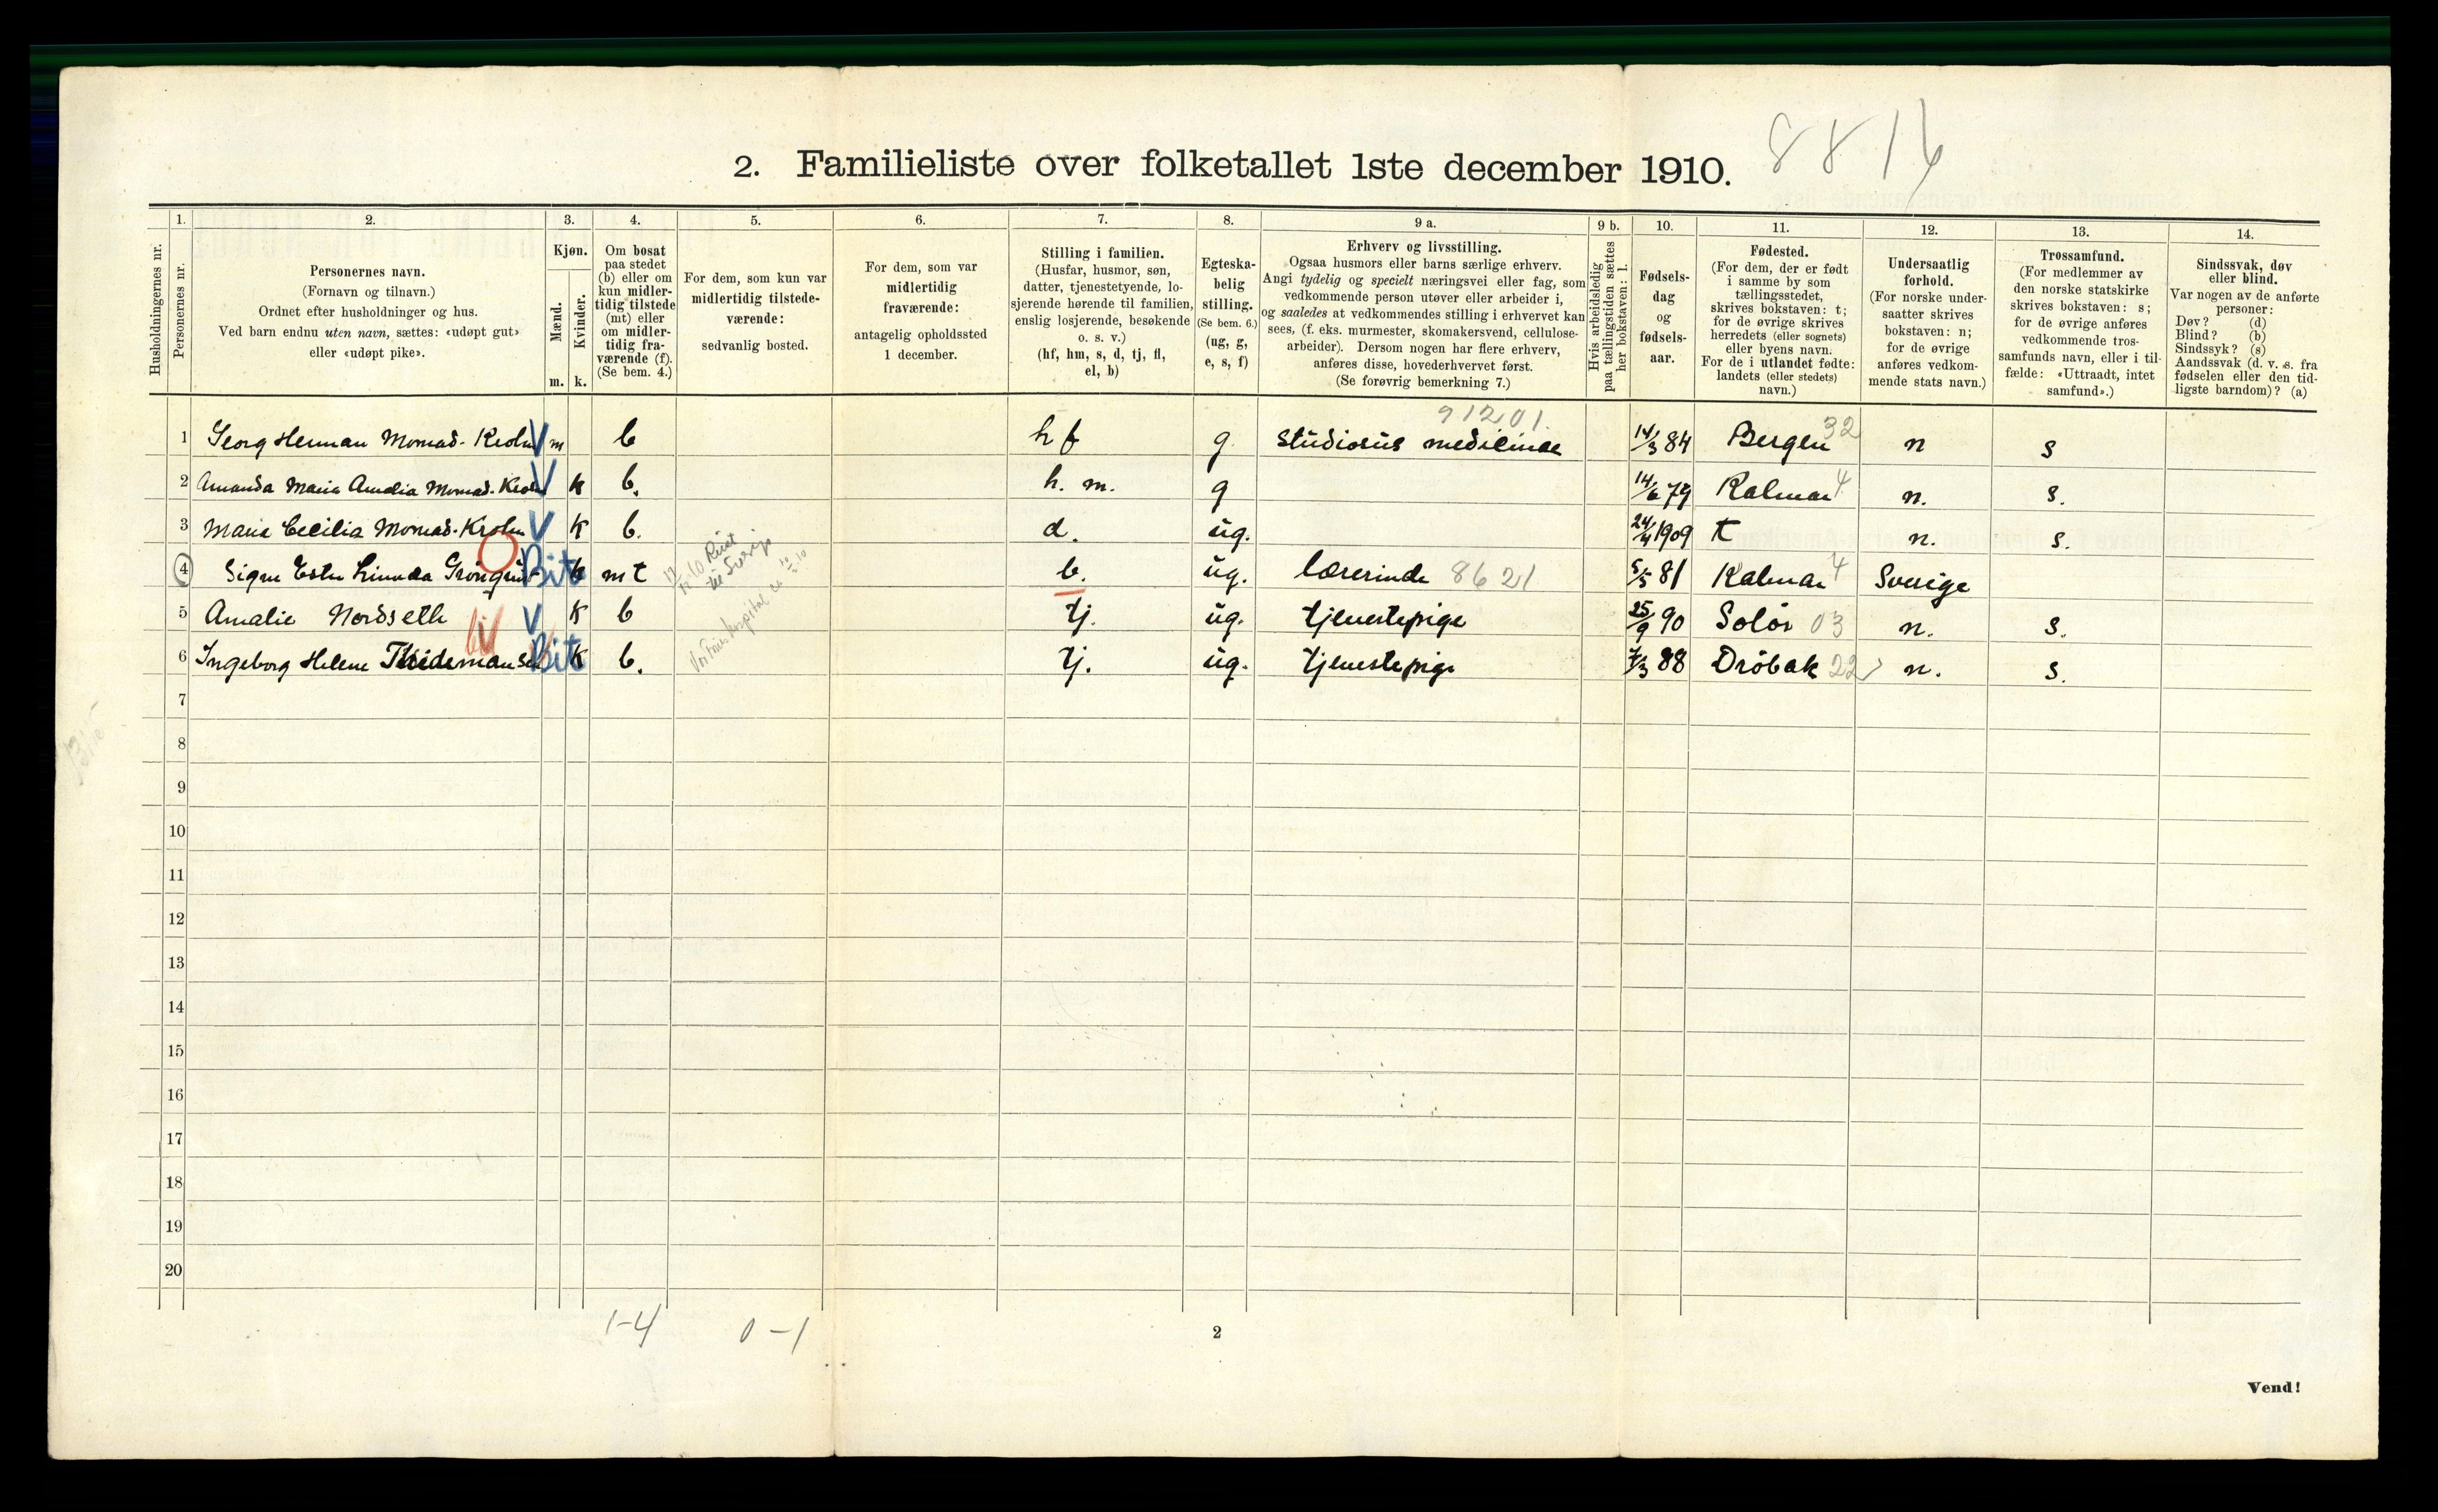 8816
2. Familieliste over folketallet 1ste december 1910.
Husholdningernes nr.
1.
Personernes nr.
2.
Personernes navn.
(Fornavn og tilnavn.)
Ordnet efter husholdninger og hus.
Ved barn endnu uten navn, sættes: «udøpt gut»
eller «udøpt pike».
3.
Kjøn.
Mænd.
Kvinder.
m. k.
4.
Om bosat
paa stedet
(b) eller om
kun midler-
tidig tilstede
(mt) eller
om midler-
tidig fra-
værende (f).
(Se bem. 4.)
5.
For dem, som kun var
midlertidig tilstede-
værende:
sedvanlig bosted.
6.
For dem, som var
midlertidig
fraværende:
antagelig opholdssted
1 december.
7.
Stilling i familien.
(Husfar, husmor, søn,
datter, tjenestetyende, lo-
sjerende hørende til familien,
enslig losjerende, besøkende
o. s. v.)
(hf, hm, s, d, tj, fl,
el, b)
8.
Egteska-
belig
stilling.
(Se bem. 6.)
(ug, g,
e, s, f)
9 a.
Erhverv og livsstilling.
Ogsaa husmors eller barns særlige erhverv.
Angi tydelig og specielt næringsvei eller fag, som
vedkommende person utøver eller arbeider i,
og saaledes at vedkommendes stilling i erhvervet kan
sees, (f. eks. murmester, skomakersvend, cellulose-
arbeider). Dersom nogen har flere erhverv,
anføres disse, hovederhvervet først.
(Se forøvrig bemerkning 7.)
9 b.
Hvis arbeidsledig
paa tællingstiden sættes
her bokstaven: l.
10.
Fødsels-
dag
og
fødsels-
aar.
11.
Fødested.
(For dem, der er født
i samme by som
tællingsstedet,
skrives bokstaven: t;
for de øvrige skrives
herredets (eller sognets)
eller byens navn.
For de i utlandet fødte:
landets (eller stedets)
navn.)
12.
Undersaatlig
forhold.
(For norske under-
saatter skrives
bokstaven: n;
for de øvrige
anføres vedkom-
mende stats navn.)
13.
Trossamfund.
(For medlemmer av
den norske statskirke
skrives bokstaven: s;
for de øvrige anføres
vedkommende tros-
samfunds navn, eller i til-
fælde: «Uttraadt, intet
samfund».)
14.
Sindssvak, døv
eller blind.
Var nogen av de anførte
personer:
Døv? (d)
Blind? (b)
Sindssyk? (s)
Aandssvak (d. v. s. fra
fødselen eller den tid-
ligste barndom)? (a)
91201.
1 Georg Herman Monrad-Krohn V m b h f g. studiosus medicinae 14/3 84 Bergen 32 n s
2 Amanda Maria Amalia Monrad-Krohn V k b. h. m. g 14/6 79 Kalmar 4 n. s.
3 Maria Cecilia Monrad-Krohn V k b. d. ug. 24/4 1909 t n. s.
4 Signe Ester Linnea Bit k mt Reist til Sverige b. ug. lærerinde 8621 5/5 81 Kalmar 4 Sverige
5 Amalie Nordseth V k b tj. ug. tjenestepige 25/9 90 Solør 03 n. s.
6 Ingeborg Helene Thidemansen Bit k b. tj. ug. tjenestepige 7/3 88 Drøbak 22 n. s.
7
8
9
10
11
12
13
14
15
16
17
18
19
20
1-4 0-1
2
Vend!